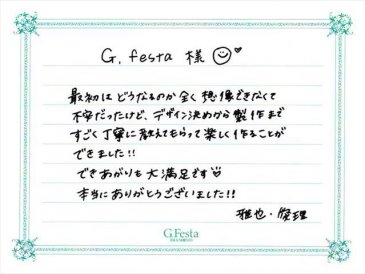 G.festa 様
最初はどうなるのか全く想像できなくて
不安だったけど、デザイン決めから製作まで
すごく丁寧に教えてもらって楽しく作ることが
できました!!
できあがりも大満足です
本当にありがとうございました!!
雅也・愛理
G.Festa